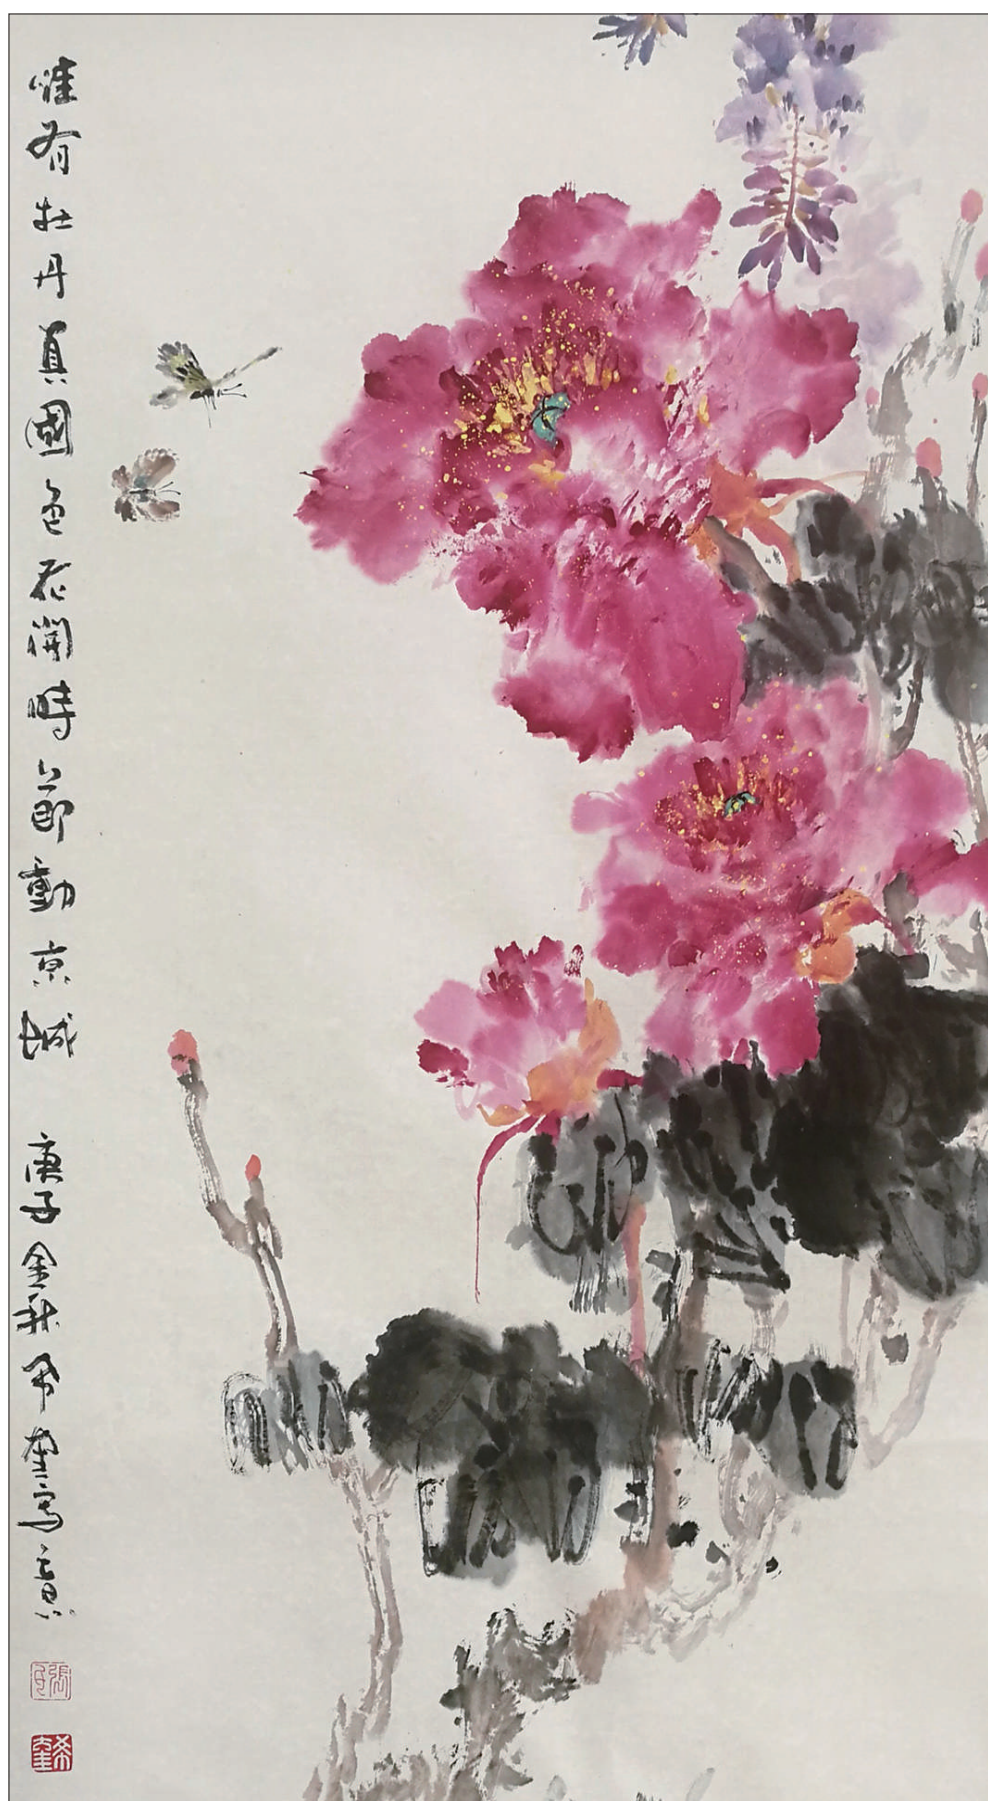 唯有牡丹真國色花開時節動京城 庚子金秋希奎寫意
張
希奎